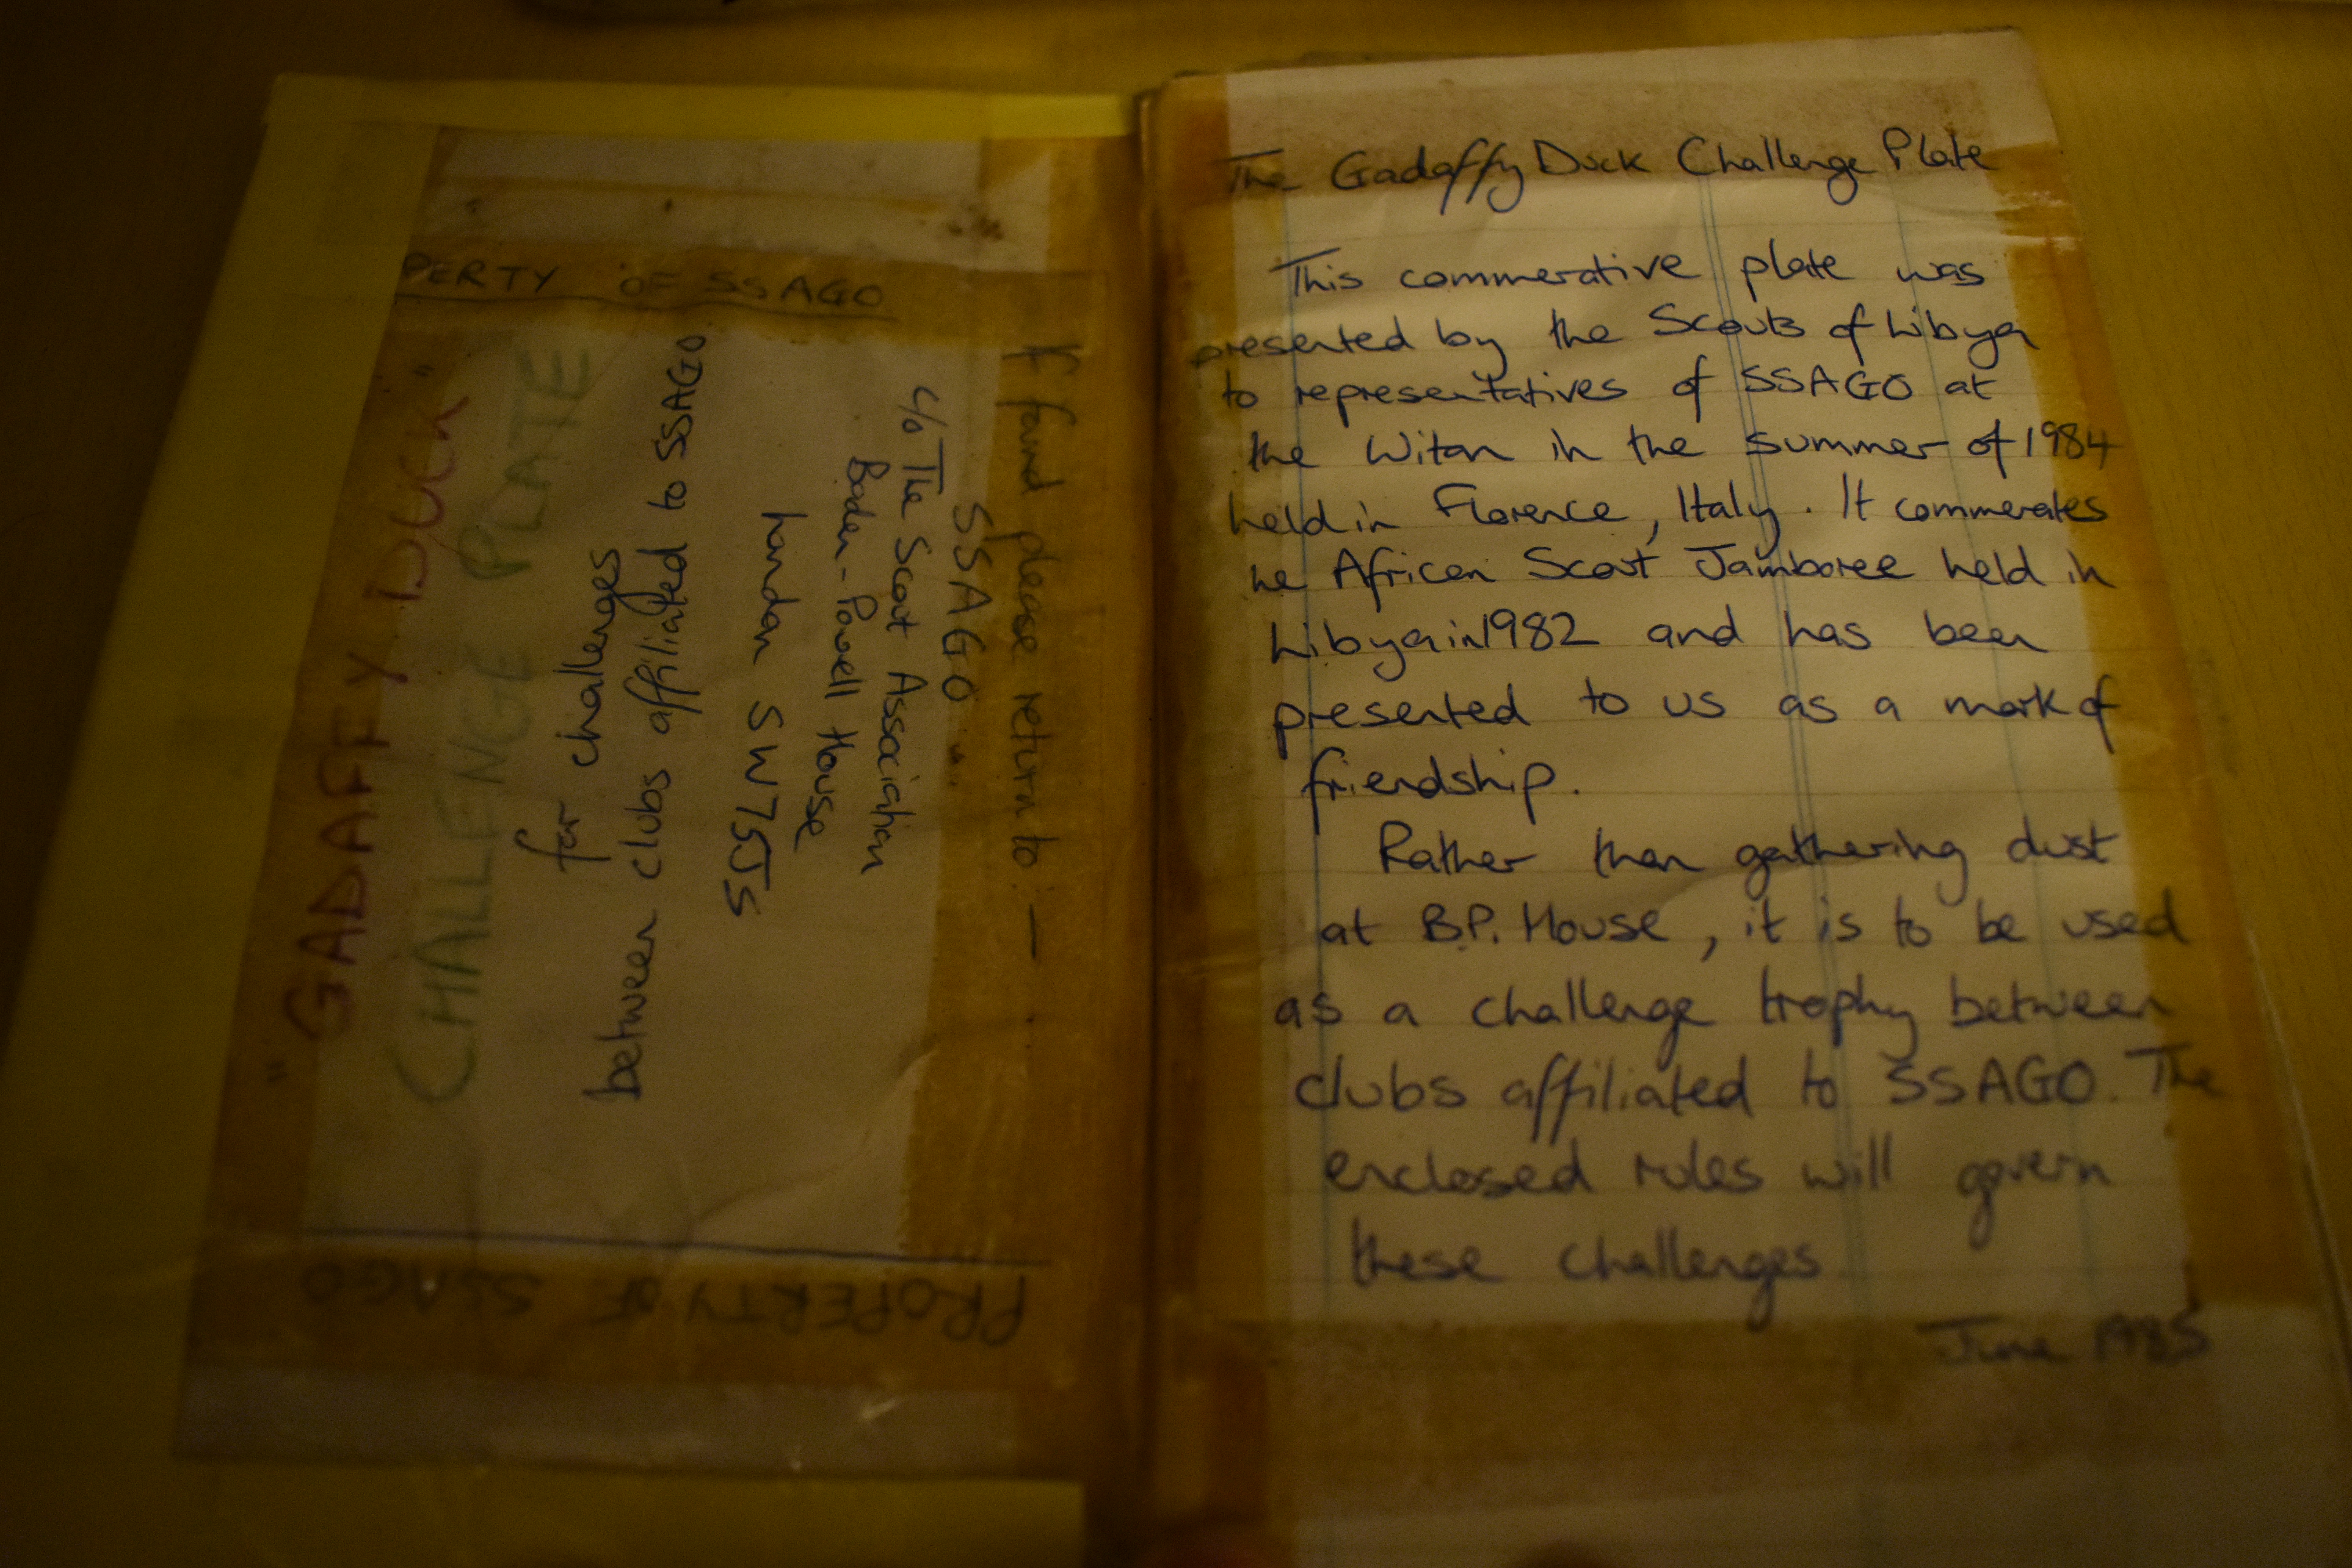 PERTY OF SSAGO
"GADAFFY DUCK"
CHALLENGE PLATE
for challenges
between clubs affiliated to SSAGO
If found please return to :—
SSAGO
c/o The Scout Association
Baden-Powell House
London SW7 5JS
PROPERTY OF SSAGO
The Gadaffy Duck Challenge Plate
This commerative plate was
presented by the Scouts of Libya
to representatives of SSAGO at
the Witan in the summer of 1984
held in Florence, Italy. It commerates
he African Scout Jamboree held in
Libya in 1982 and has been
presented to us as a mark of
friendship.
Rather than gathering dust
at B.P. House, it is to be used
as a challenge trophy between
clubs affiliated to SSAGO. The
enclosed rules will govern
these challenges
June 1985